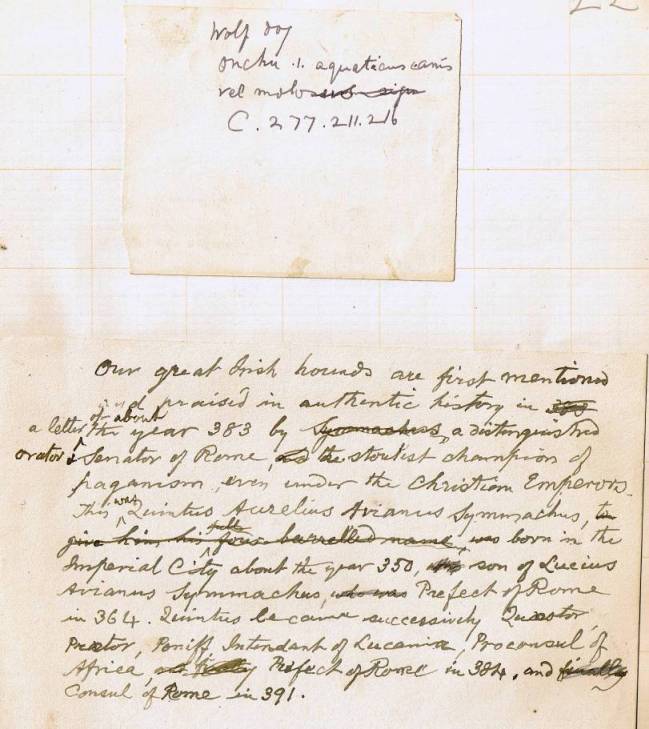 22
Wolf dog
Onchu .i. aquaticus canis
vel molo
C. 277. 211. 216
Our great Irish hounds are first mentioned
and praised in authentic history in 383
a letter of about the year 383 by Symmachus, a distinguished
orator & Senator of Rome, and the stoutest champion of
paganism, even under the Christian Emperors.
This was Quintus Aurelius Avianus Symmachus, to
give him his full four barrelled name, was born in the
Imperial City about the year 350, son of Lucius
Avianus Symmachus, who was Prefect of Rome
in 364. Quintus became successively Quaestor,
Praetor, Poniff, Intendant of Lucania, Proconsul of
Africa, Prefect of Rome in 384, and finally
Consul of Rome in 391.